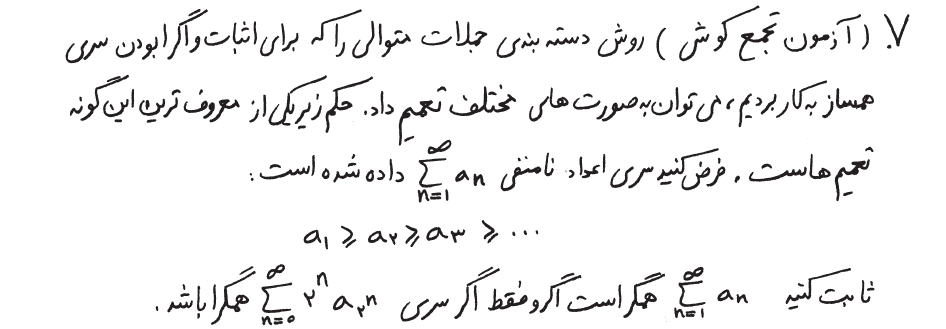 ۷. (آزمون تجمع کوشی) روش دسته بندی جملات متوالی را که برای اثبات واگرا بودن سری
همساز به کار بردیم، می توان به صورت های مختلف تعمیم داد. حکم زیر یکی از معروف ترین این گونه
تعمیم هاست. فرض کنید سری اعداد نامنفی $\sum_{n=1}^{\infty} a_n$ داده شده است:
$a_1 \geqslant a_۲ \geqslant a_۳ \geqslant \cdots$
ثابت کنید $\sum_{n=1}^{\infty} a_n$ همگراست اگر و فقط اگر سری $\sum_{n=0}^{\infty} ۲^n a_{۲^n}$ همگرا باشد.